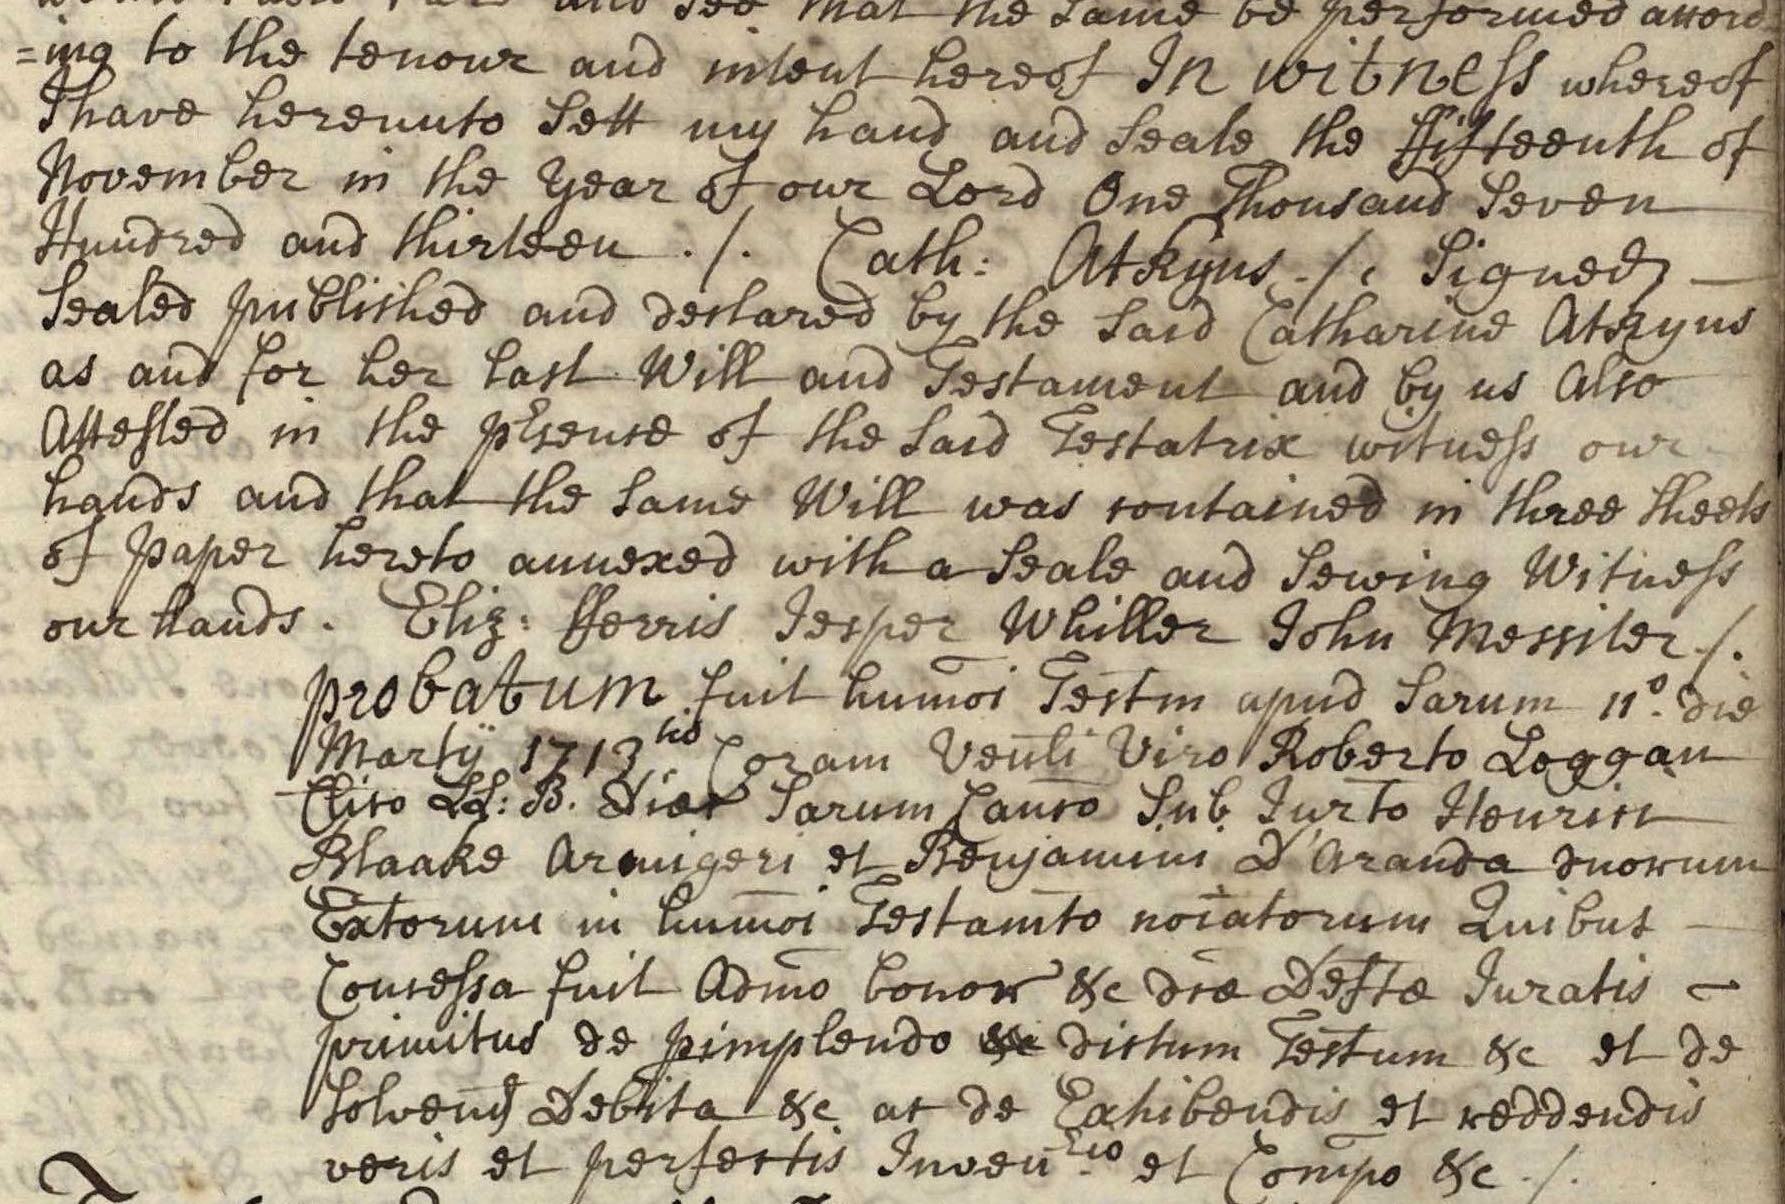 and see that the same be performed accord-
=ing to the tenour and intent hereof In witness whereof
I have hereunto Sett my hand and Seale the ffifteenth of
November in the Year of our Lord One Thousand Seven
Hundred and thirteen ./. Cath: Atkyns ./. Signed
Sealed published and declared by the Said Catharine Atkyns
as and for her last Will and Testament and by us Also
Attested in the pḥsence of the Said Testatrix witness our
hands and that the Same Will was contained in three sheets
of paper hereto annexed with a Seale and Sewing Witness
our hands. Eliz: fferris Jesper Whiller John Messiter ./.
Probatum fuit humōi Testm apud Sarum 11º. die
Martij 1713tio Coram Venli Viro Roberto Loggan
Clico LL: B. Sarum Canco Sub. Jurto Henrici
Blaake Armigeri et Benjamini D'Aranda duorum
Extorum in humōi Testamto noīatorum Quibus
Concessa fuit Admo bonor &c dcæ Deftæ Juratis
primitus de pimplendo &c dictum Testum &c et de
Solvend Debita &c ac de Exhibendis et reddendis
veris et perfectis Invenrio et Compo &c ./.